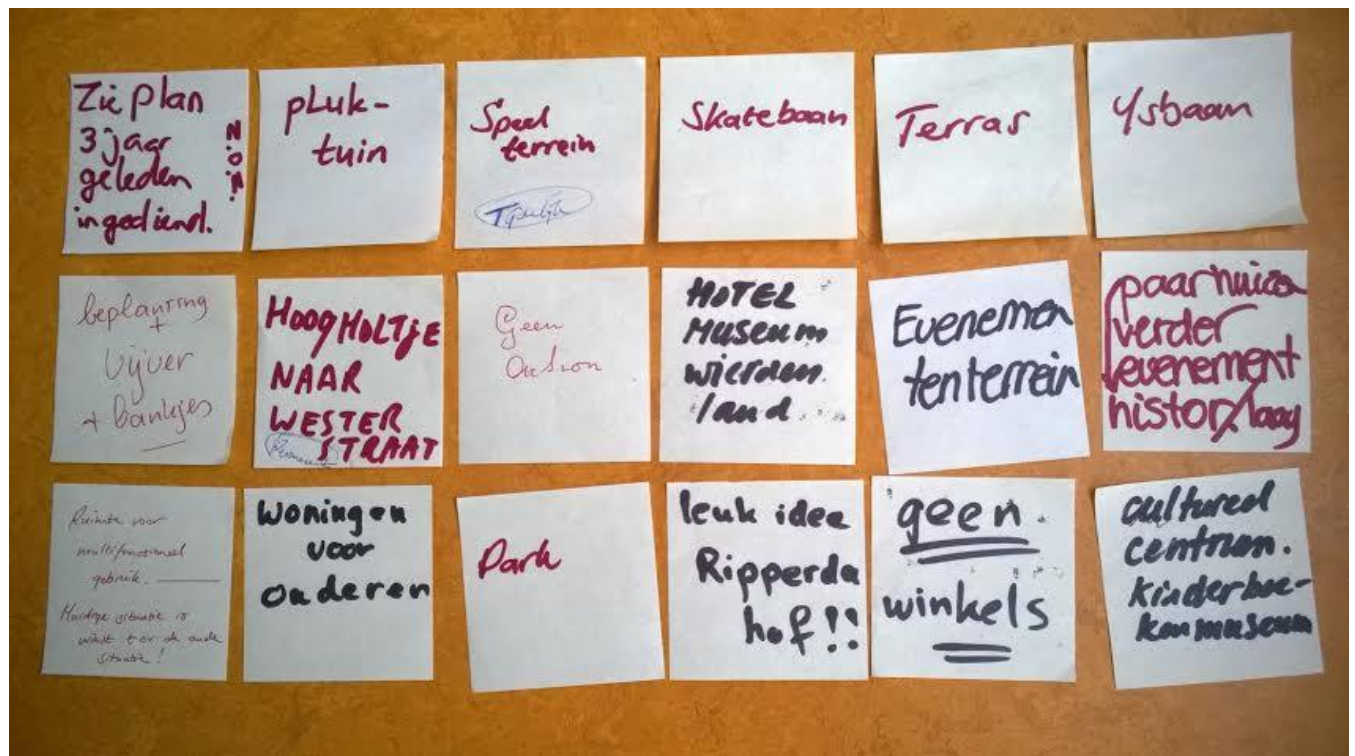 Zie plan
3 jaar
geleden
ingediend.
N.O.M.
pluk-
tuin
Speel
terrein
Tijdelijk
Skatebaan
Terras
Ysbaan
beplanting
+
vijver
+ bankjes
HOOGHOLTJE
NAAR
WESTER
STRAAT
Geen
HOTEL
Museum
wierden
land
Evenemen
tenterrein
paar huizen
verder
evenement
histor/laag
Ruimte voor
multifunctioneel
gebruik.
Huidige situatie is
winst t.o.v. de oude
situatie!
Woningen
voor
ouderen
Park
leuk idee
Ripperda
hof!!
geen
winkels
cultureel
centrum.
kinderboe-
kenmuseum